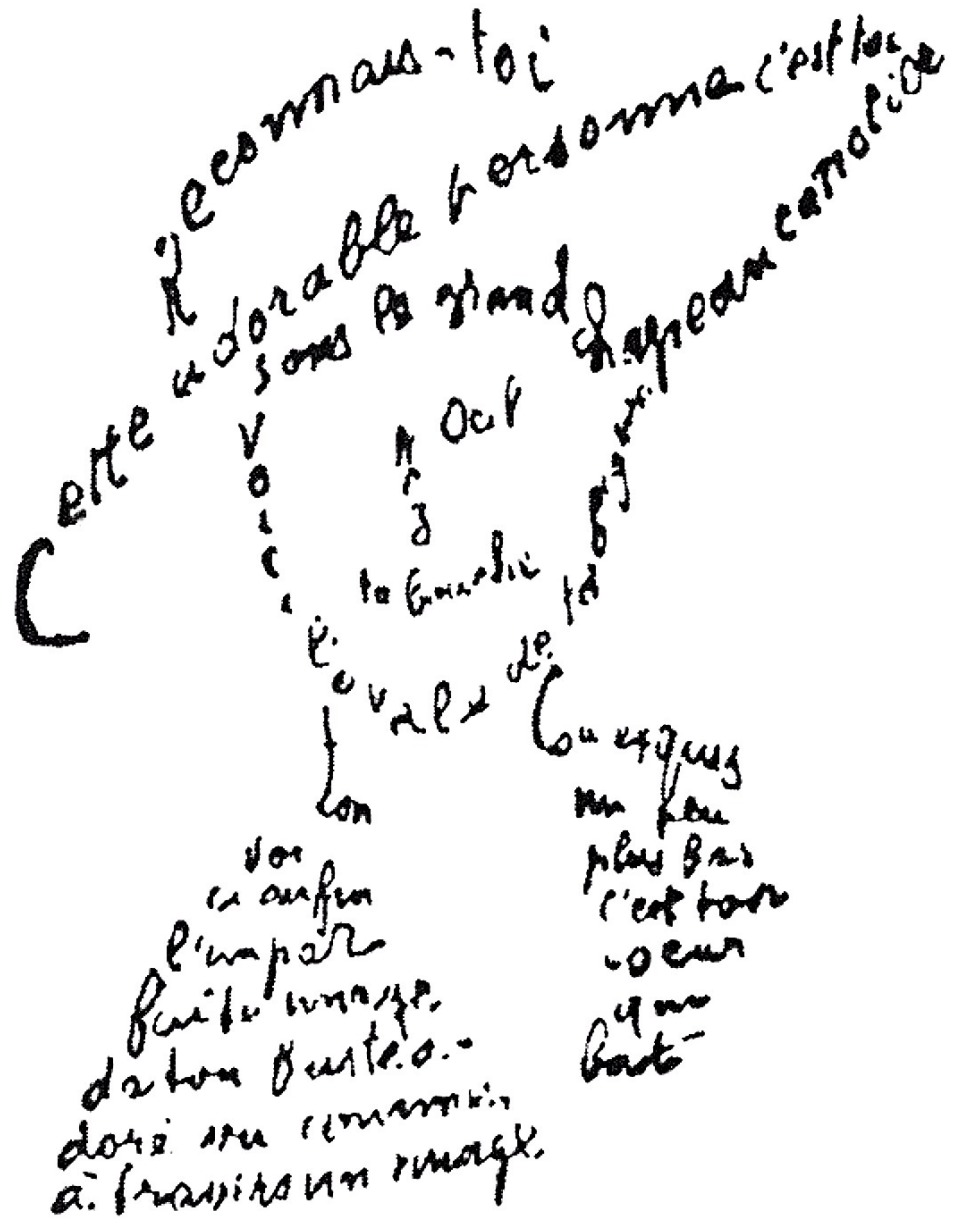 Reconnais-toi
Cette adorable personne c'est toi
sous le grand chapeau canotier
Oeil
Nez
ta bouche
Voici l'ovale de ta figure
Ton
cou exquis
Voi
ci enfin
l'impar
faite image
de ton buste a-
doré vu comme
à travers un nuage.
un peu
plus bas
c'est ton
coeur
qui
bat